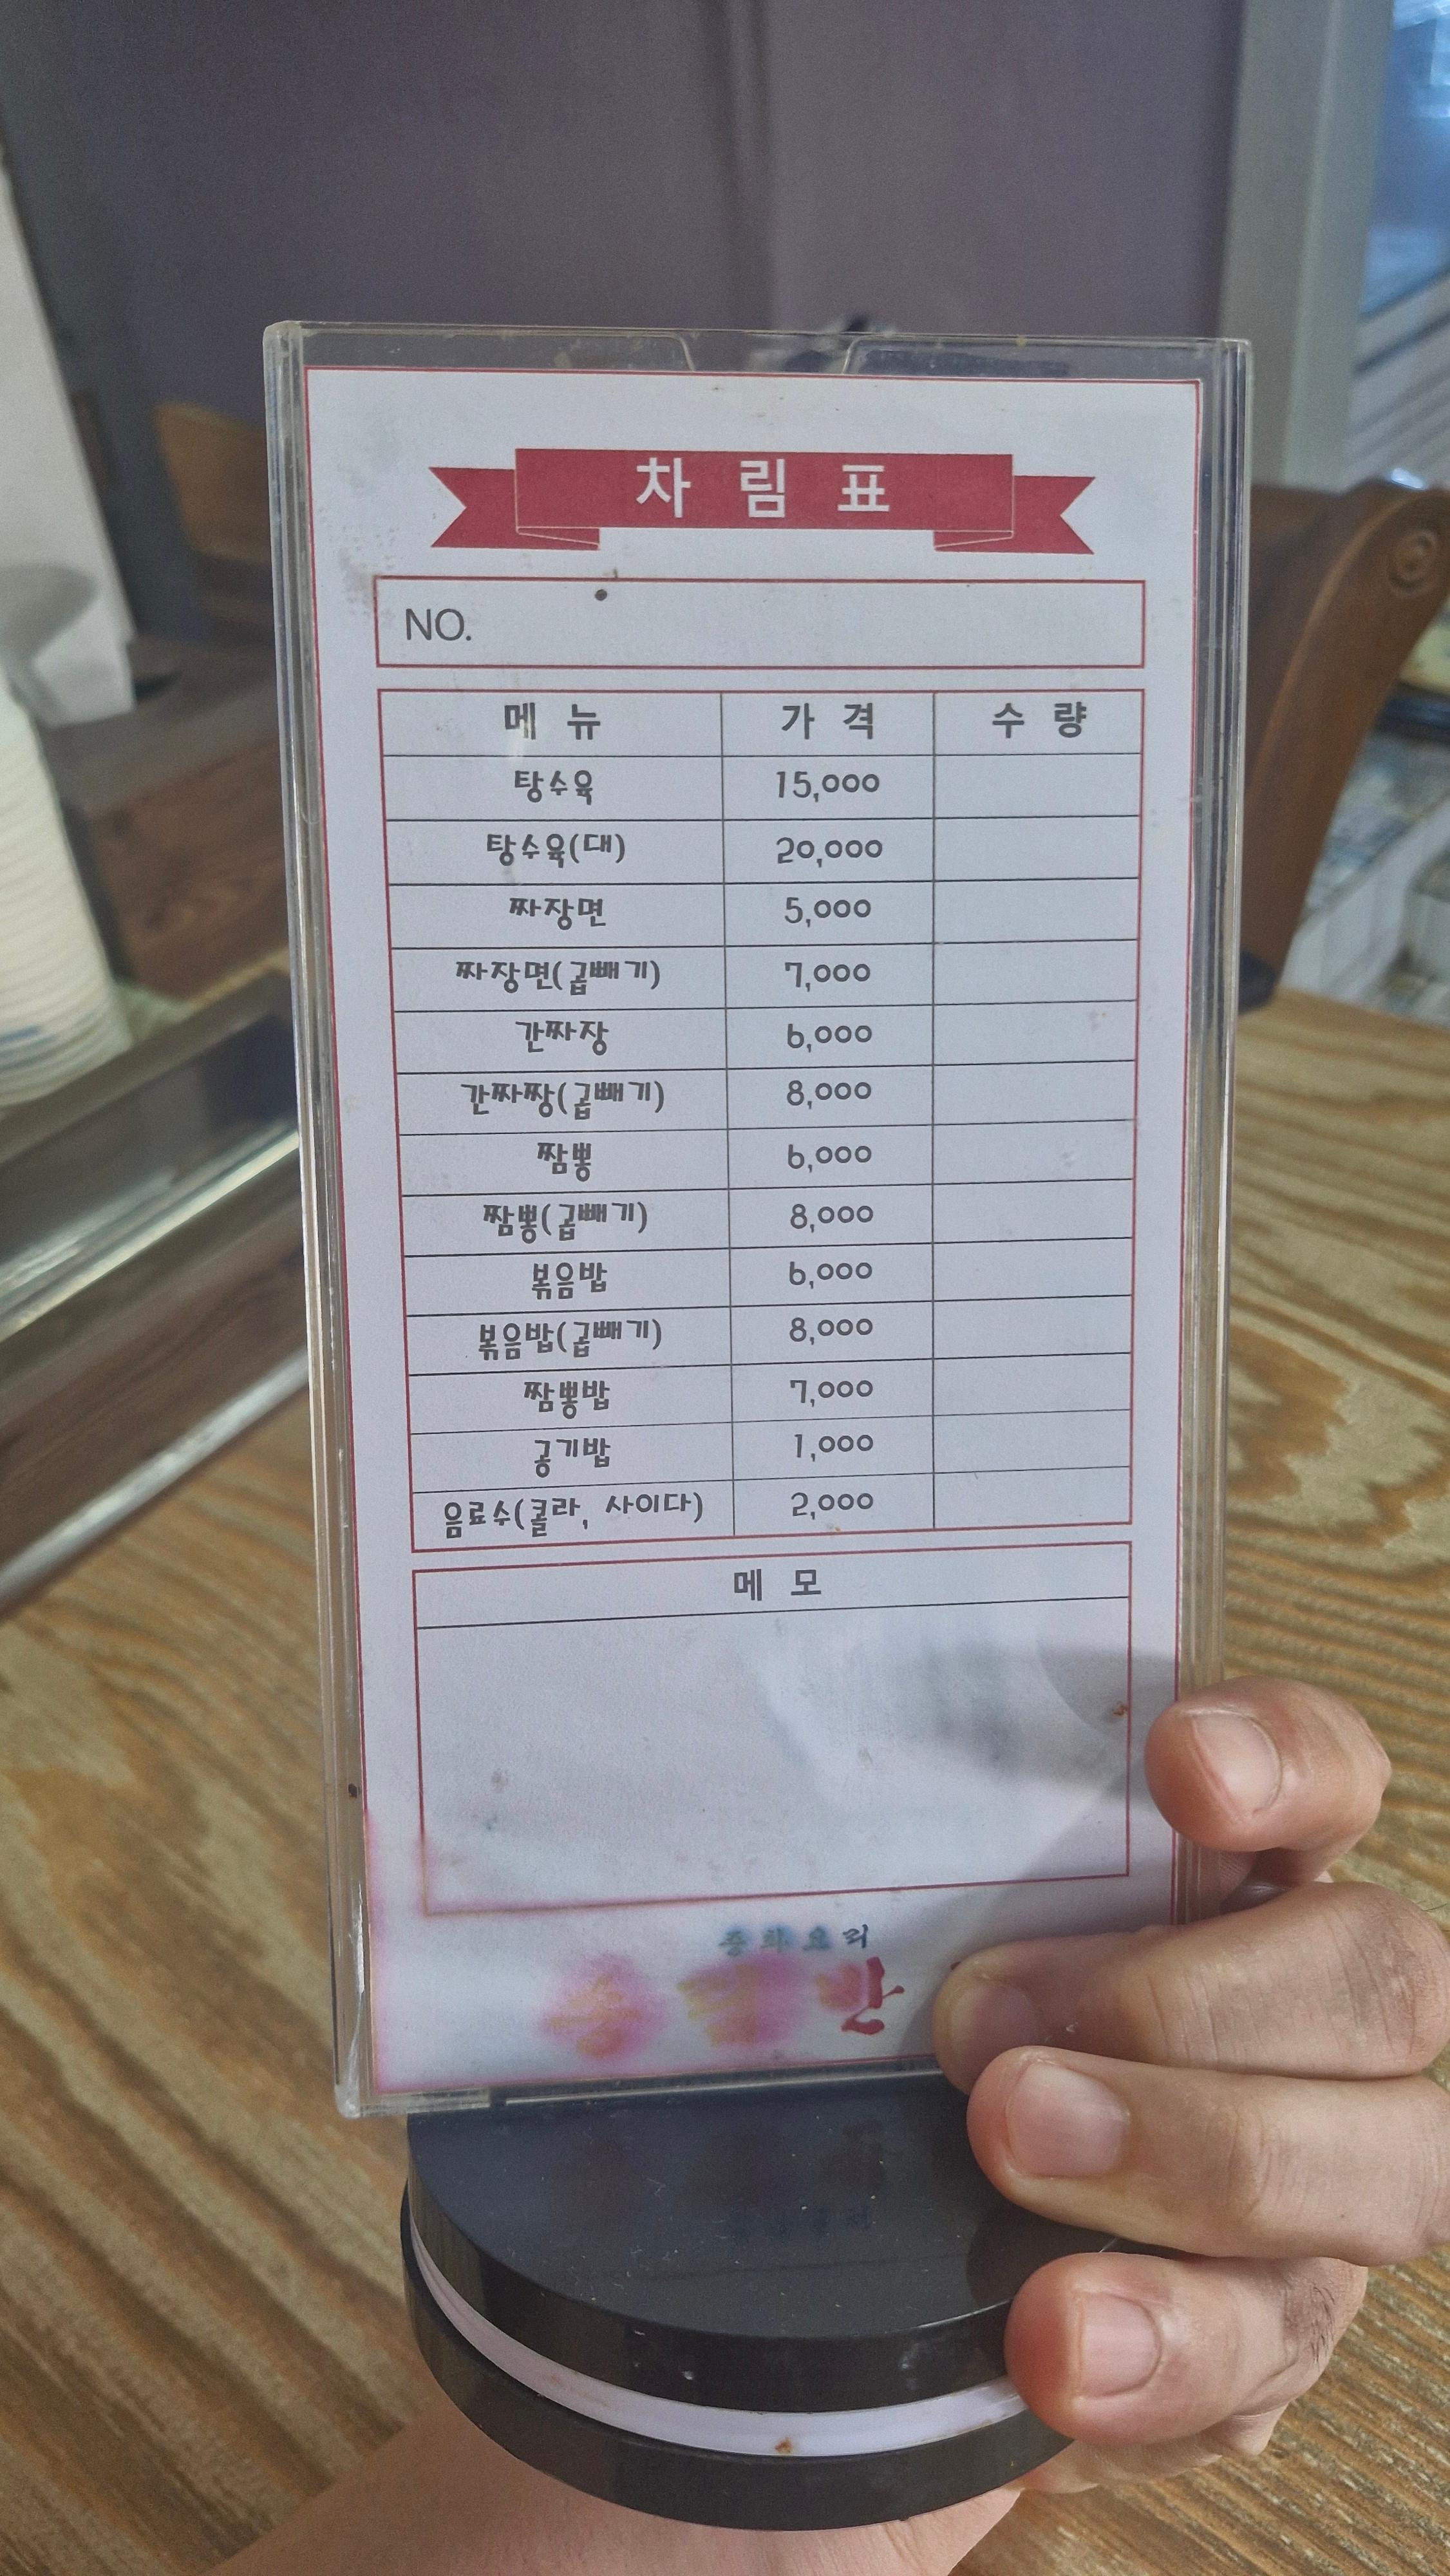 차 림 표
NO.
메 뉴 가 격 수 량
탕수육 15,000
탕수육(대) 20,000
짜장면 5,000
짜장면(곱빼기) 7,000
간짜장 6,000
간짜짱(곱빼기) 8,000
짬뽕 6,000
짬뽕(곱빼기) 8,000
볶음밥 6,000
볶음밥(곱빼기) 8,000
짬뽕밥 7,000
공기밥 1,000
음료수(콜라, 사이다) 2,000
메 모
중화요리